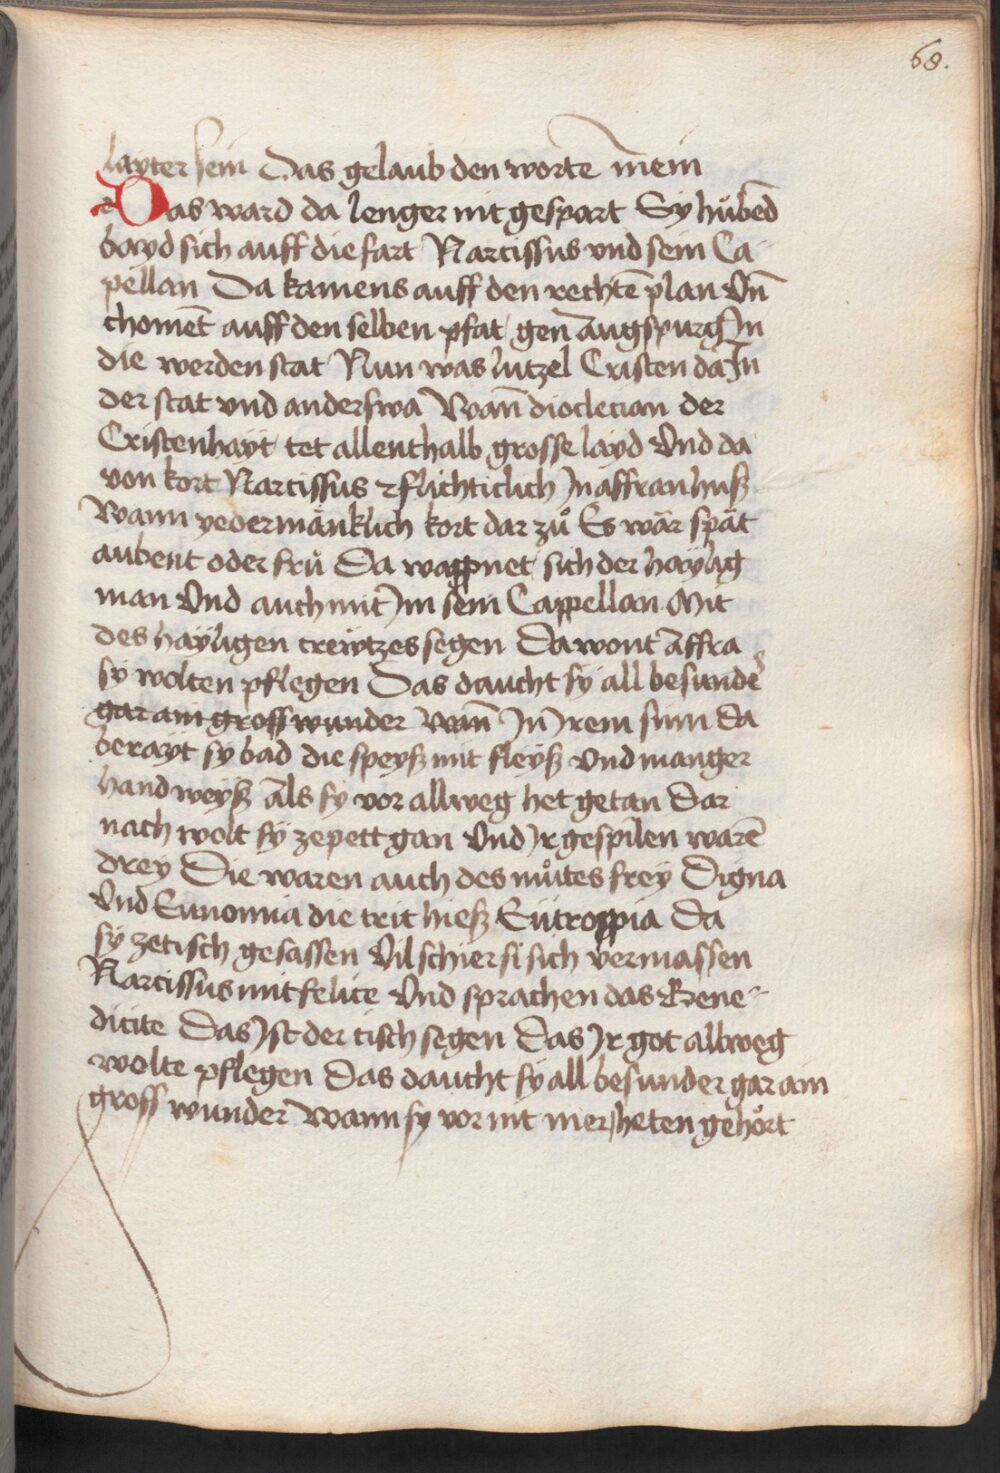 68.
layter sein Das gelaub den worte mein
Das ward da lenger nit gespart Sy hůbēd
bayd sich auff die fart Narcissus vnd sein Ca
pellan Da kamens auff den rechtē plan Vn̄
chomēt auff den selben pfat gen augspurg In
die werden stat Nun was lutzel Cristen da In
der stat vnd anderswa Wan̄ dioclecian der
Cristenhayt tet allenthalb grosse layd Vnd da
von kort Narcissus flichticlich In affran huß
Wann yedermänklich kort dar zů Es wär spät
aubent oder frů Da wappnet sich der haylig
man Vnd auch mit Im sein Cappellan Mit
des hayligen creẅtzes segen Da wont affra
sy wolten pflegen Das daucht sy all besunder
gar ain gross wunder Wan̄ In Irem sinn da
berayt sy bad die speyß mit fleyß Vnd manger
hand weyß Als sy vor allweg het getan Dar
nach wolt sy ze pett gan Vnd Ir gespilen warē
drey Die waren auch des můtes frey Digna
Vnd Eunomia die trit hieß Eütroppia Da
sy ze tisch gesassen Vil schier si sich vermassen
Narcissus mit felice Vnd sprachen das Bene
dicite Das Ist der tisch segen Das Ir got allweg
wolte pflegen Das daucht sy all besunder gar ain
gross wunder Wann sy vor nit mer heten gehört